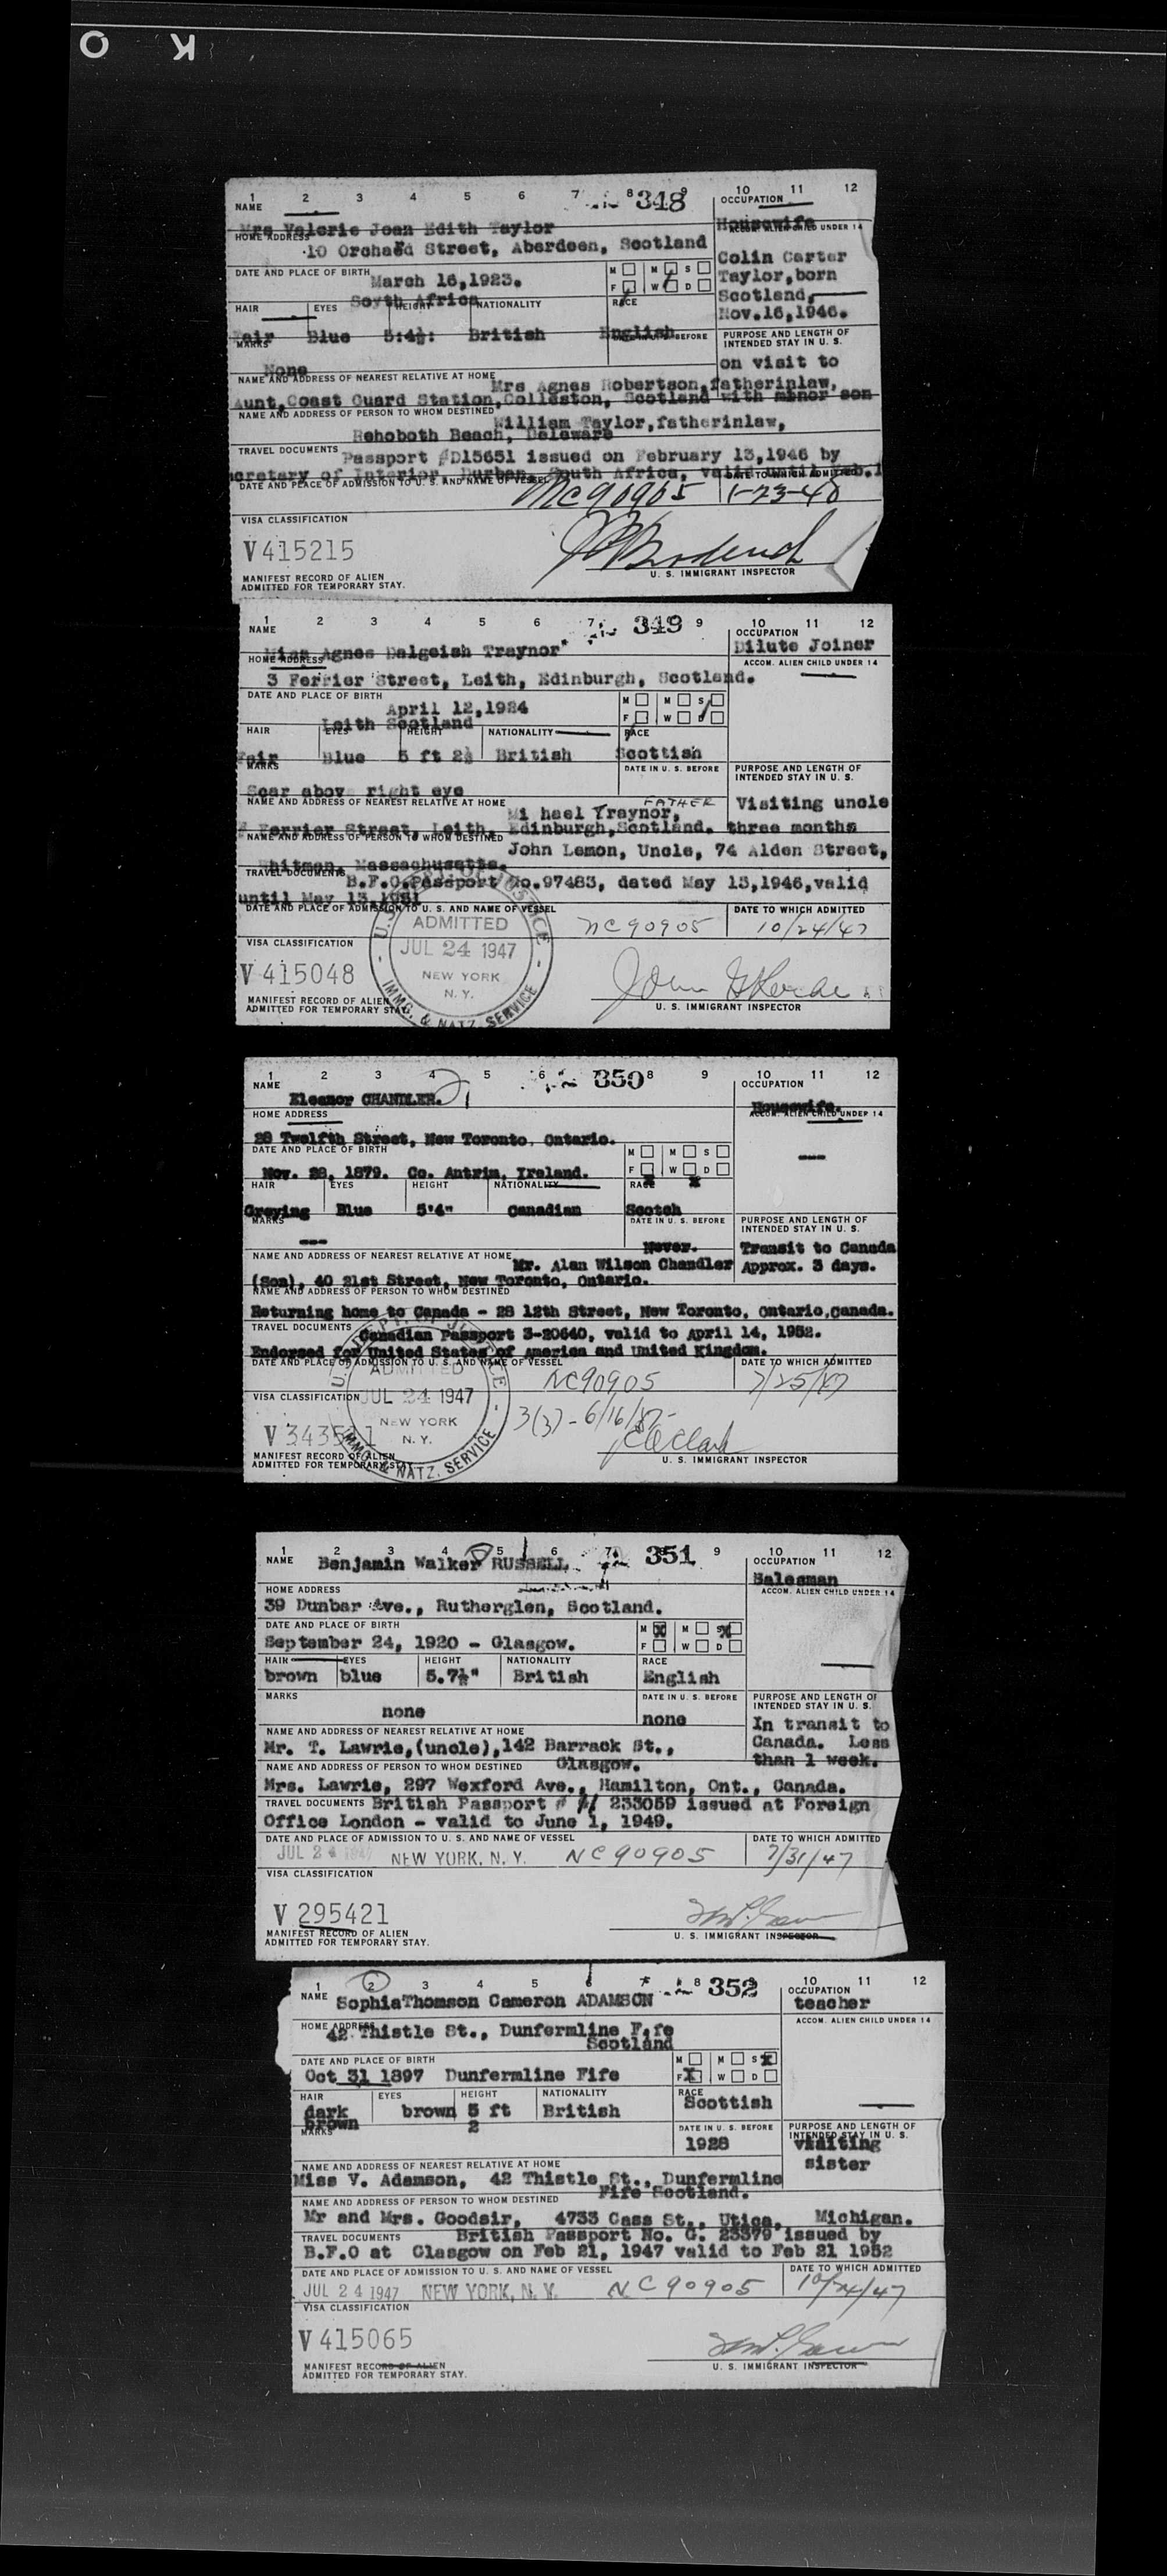 O K
1 2 3 4 5 6 7 8 348 9 10 11 12
NAME OCCUPATION
Mrs Valerie Joan Edith Taylor Housewife
HOME ADDRESS ACCOM. ALIEN CHILD UNDER 14
10 Orchard Street, Aberdeen, Scotland
Colin Carter
Taylor, born
Scotland,
Nov.16,1946.
DATE AND PLACE OF BIRTH March 16,1923. M M S
South Africa F W D
HAIR EYES HEIGHT NATIONALITY RACE
Fair Blue 5:4½: British English
MARKS DATE IN U. S. BEFORE PURPOSE AND LENGTH OF
INTENDED STAY IN U. S.
None on visit to
NAME AND ADDRESS OF NEAREST RELATIVE AT HOME Mrs Agnes Robertson, fatherinlaw,
Aunt, Coast Guard Station, Colleston, Scotland with minor son
NAME AND ADDRESS OF PERSON TO WHOM DESTINED William Taylor, fatherinlaw,
Rehoboth Beach, Delaware
TRAVEL DOCUMENTS Passport #D15651 issued on February 13,1946 by
cretary of Interior, Durban, South Africa, valid until Feb.1
DATE AND PLACE OF ADMISSION TO U. S. AND NAME OF VESSEL DATE TO WHICH ADMITTED
NC90905 1-23-48
VISA CLASSIFICATION
V415215
U. S. IMMIGRANT INSPECTOR
MANIFEST RECORD OF ALIEN
ADMITTED FOR TEMPORARY STAY.
1 2 3 4 5 6 7 349 9 10 11 12
NAME OCCUPATION
Miss Agnes Dalgeish Traynor Dilute Joiner
HOME ADDRESS ACCOM. ALIEN CHILD UNDER 14
3 Ferrier Street, Leith, Edinburgh, Scotland.
DATE AND PLACE OF BIRTH M M S
April 12,1924 F W D
Leith Scotland
HAIR EYES HEIGHT NATIONALITY RACE
Fair Blue 5 ft 2½ British Scottish
MARKS DATE IN U. S. BEFORE PURPOSE AND LENGTH OF
INTENDED STAY IN U. S.
Scar abov right eye
NAME AND ADDRESS OF NEAREST RELATIVE AT HOME FATHER Visiting uncle
Mi hael Traynor,
Ferrier Street, Leith, Edinburgh, Scotland. three months
NAME AND ADDRESS OF PERSON TO WHOM DESTINED
John Lemon, Uncle, 74 Alden Street,
Whitman, Massachusetts.
TRAVEL DOCUMENTS B.F.O. Passport No.97483, dated May 13,1946, valid
until May 13,1951
DATE AND PLACE OF ADMISSION TO U. S. AND NAME OF VESSEL DATE TO WHICH ADMITTED
ADMITTED NC90905 10/24/47
VISA CLASSIFICATION JUL 24 1947
V415048 NEW YORK
N. Y.
IMMG. & NATZ. SERVICE
MANIFEST RECORD OF ALIEN
ADMITTED FOR TEMPORARY STAY.
U. S. IMMIGRANT INSPECTOR
1 2 3 4 5 6 7 350 8 9 10 11 12
NAME OCCUPATION
Eleanor CHANDLER. Housewife.
HOME ADDRESS ACCOM. ALIEN CHILD UNDER 14
28 Twelfth Street, New Toronto, Ontario.
DATE AND PLACE OF BIRTH M M S
Nov. 28, 1879. Co. Antrim, Ireland. F W D
HAIR EYES HEIGHT NATIONALITY RACE
Greying Blue 5'4" Canadian Scotch
MARKS DATE IN U. S. BEFORE PURPOSE AND LENGTH OF
INTENDED STAY IN U. S.
--- Never. Transit to Canada
NAME AND ADDRESS OF NEAREST RELATIVE AT HOME Mr. Alan Wilson Chandler Approx. 3 days.
(Son), 40 21st Street, New Toronto, Ontario.
NAME AND ADDRESS OF PERSON TO WHOM DESTINED
Returning home to Canada - 28 12th Street, New Toronto, Ontario, Canada.
TRAVEL DOCUMENTS Canadian Passport 3-20640, valid to April 14, 1952.
Endorsed for United States of America and United Kingdom.
DATE AND PLACE OF ADMISSION TO U. S. AND NAME OF VESSEL DATE TO WHICH ADMITTED
ADMITTED NC90905 7/25/47
VISA CLASSIFICATION JUL 24 1947
3(3)-6/16/47-
NEW YORK
N. Y.
IMMG. & NATZ. SERVICE
CEClark
MANIFEST RECORD OF ALIEN
ADMITTED FOR TEMPORARY STAY.
U. S. IMMIGRANT INSPECTOR
1 2 3 4 5 6 7 351 9 10 11 12
NAME Benjamin Walker RUSSELL OCCUPATION
Salesman
HOME ADDRESS ACCOM. ALIEN CHILD UNDER 14
39 Dunbar Ave., Rutherglen, Scotland.
DATE AND PLACE OF BIRTH M X M S X
September 24, 1920 - Glasgow. F W D
HAIR EYES HEIGHT NATIONALITY RACE
brown blue 5.7½" British English
MARKS DATE IN U. S. BEFORE PURPOSE AND LENGTH OF
INTENDED STAY IN U. S.
none none In transit to
NAME AND ADDRESS OF NEAREST RELATIVE AT HOME Canada. Less
Mr. T. Lawrie,(uncle),142 Barrack St., than 1 week.
Glasgow.
NAME AND ADDRESS OF PERSON TO WHOM DESTINED
Mrs. Lawrie, 297 Wexford Ave., Hamilton, Ont., Canada.
TRAVEL DOCUMENTS British Passport # 233059 issued at Foreign
Office London - valid to June 1, 1949.
DATE AND PLACE OF ADMISSION TO U. S. AND NAME OF VESSEL DATE TO WHICH ADMITTED
JUL 24 1947 NEW YORK, N. Y. NC90905 7/31/47
VISA CLASSIFICATION
V 295421
MANIFEST RECORD OF ALIEN
ADMITTED FOR TEMPORARY STAY.
U. S. IMMIGRANT INSPECTOR
1 2 3 4 5 6 7 8 352 10 11 12
NAME SophiaThomson Cameron ADAMSON OCCUPATION
teacher
HOME ADDRESS ACCOM. ALIEN CHILD UNDER 14
42 Thistle St., Dunfermline Fife
Scotland
DATE AND PLACE OF BIRTH M M S X
Oct 31 1897 Dunfermline Fife F X W D
HAIR EYES HEIGHT NATIONALITY RACE
dark brown brown 5 ft 2 British Scottish
MARKS DATE IN U. S. BEFORE PURPOSE AND LENGTH OF
INTENDED STAY IN U. S.
1928 visiting
sister
NAME AND ADDRESS OF NEAREST RELATIVE AT HOME
Miss V. Adamson, 42 Thistle St., Dunfermline
Fife Scotland.
NAME AND ADDRESS OF PERSON TO WHOM DESTINED
Mr and Mrs. Goodsir, 4733 Cass St., Utica, Michigan.
TRAVEL DOCUMENTS British Passport No. G. 23379 issued by
B.F.O at Glasgow on Feb 21, 1947 valid to Feb 21 1952
DATE AND PLACE OF ADMISSION TO U. S. AND NAME OF VESSEL DATE TO WHICH ADMITTED
JUL 24 1947 NEW YORK, N. Y. NC90905 10/24/47
VISA CLASSIFICATION
V415065
MANIFEST RECORD OF ALIEN
ADMITTED FOR TEMPORARY STAY.
U. S. IMMIGRANT INSPECTOR